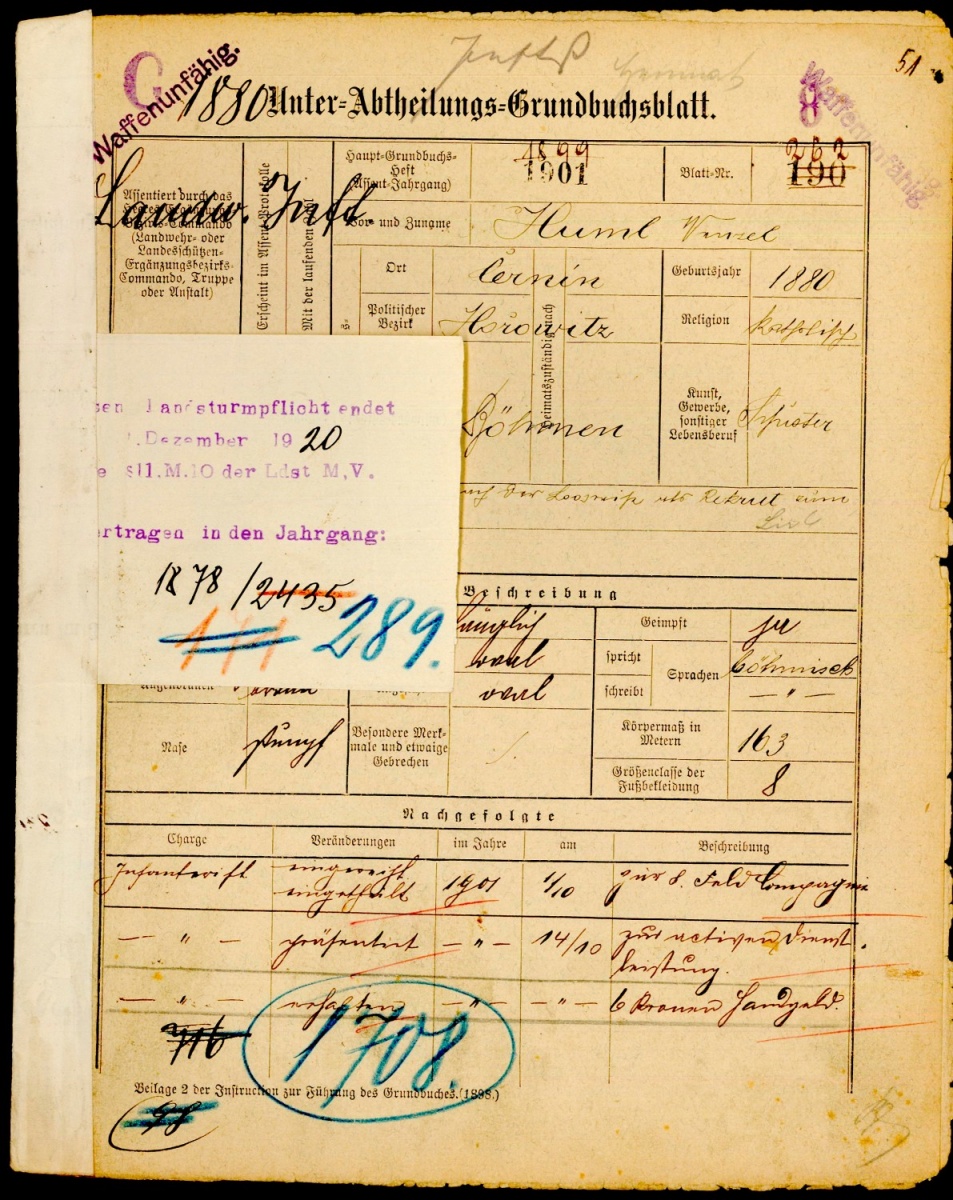 51
G
Waffenunfähig.
8
Waffenunfähig.
1880
Unter-Abtheilungs-Grundbuchsblatt.
Assentiert durch das
(Landwehr- oder
Landesschützen-
Ergänzungsbezirks-
Commando, Truppe
oder Anstalt)
Landw. Inft.
Erscheint im Assent-Protokolle
Mit der laufenden
Haupt-Grundbuchs-
Heft
(Assent-Jahrgang)
1899
1901
Blatt-Nr.
262
190
Vor- und Zuname
Huml Wenzel
Ort
Černin
Geburtsjahr
1880
Politischer
Bezirk
Hořowitz
Religion
katholisch
Heimatszuständig nach
Böhmen
Kunst,
Gewerbe,
sonstiger
Lebensberuf
Schuster
nach der Losreihe als Rekrut zum
Landsturmpflicht endet
.Dezember 1920
§11.M.10 der Ldst M,V.
ertragen in den Jahrgang:
1878 / 2435
289.
Beschreibung
länglich
Geimpft
ja
oval
spricht
schreibt
Sprachen
böhmisch
— " —
Augenbrauen
braun
oval
Nase
stumpf
Besondere Merk-
male und etwaige
Gebrechen
Körpermaß in
Metern
163
Größenclasse der
Fußbekleidung
8
Nachgefolgte
Charge
Veränderungen
im Jahre
am
Beschreibung
Infanterist eingereiht
eingetheilt 1901 1/10 zur 8. Feld Compagnie
— " — präsentiert — " — 14/10 zur activen Dienst-
leistung.
— " — erhalten — " — — " — 6 Kronen Handgeld.
716
1708.
Beilage 2 der Instruction zur Führung des Grundbuches.(1898.)
98